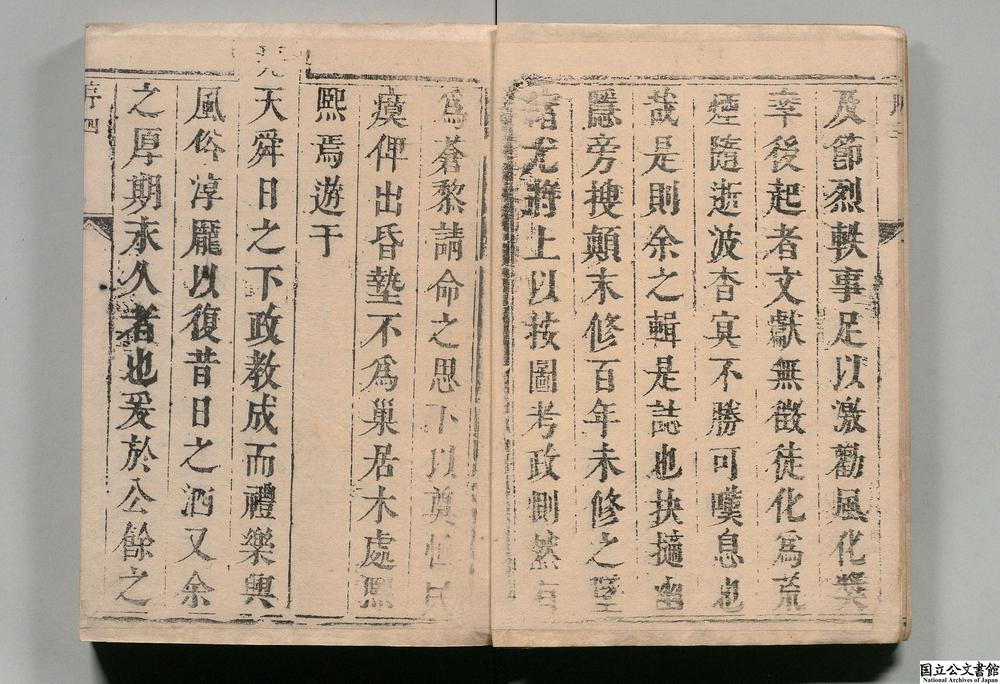 及節烈軼事足以激勸風化奬
率後起者文獻無徵徒化為荒
煙隨逝波杳寞不勝可嘆息也
哉是則余之輯是誌也抉摘幽
隱旁搜顛末修百年未修之墜
緒尤將上以按圖考政惻然有
為蒼黎請命之思下以奠恒民
瘼俾出昏墊不為巢居木處熙
熙焉遊于
堯
天舜日之下政教成而禮樂興
風俗淳龎以復昔日之酒又余
之厚期永久者也爰於公餘之
序四
国立公文書館
National Archives of Japan